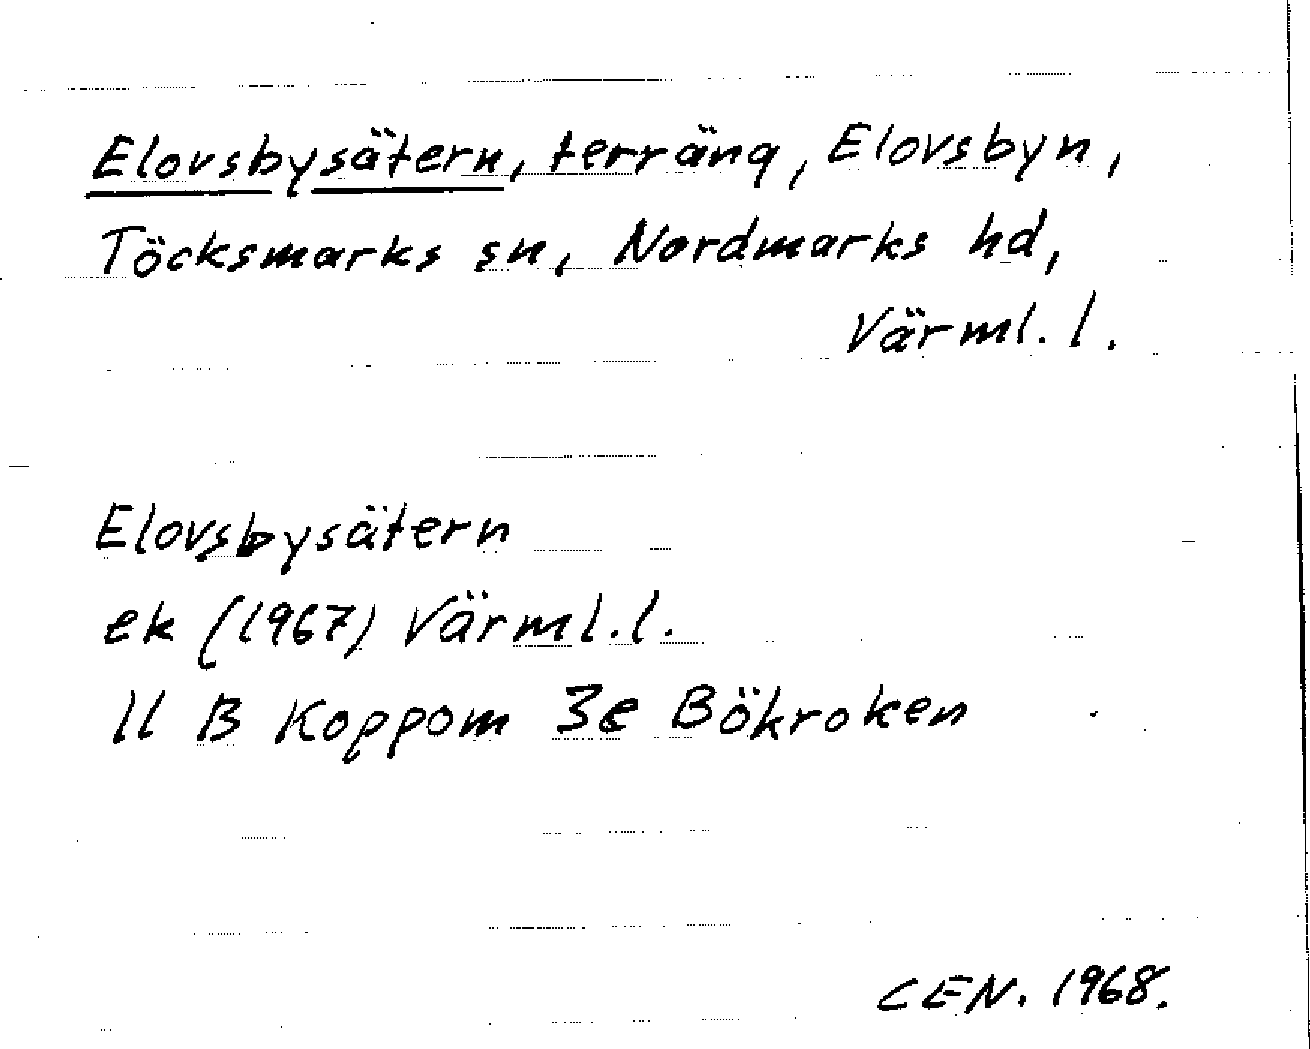 Elovsbysätern, terräng, Elovsbyn,
Töcksmarks sn, Nordmarks hd,
Värml. l.
Elovsbysätern
ek (1967) Värml. l.
11 B Koppom 3e Bökroken
CEN. 1968.